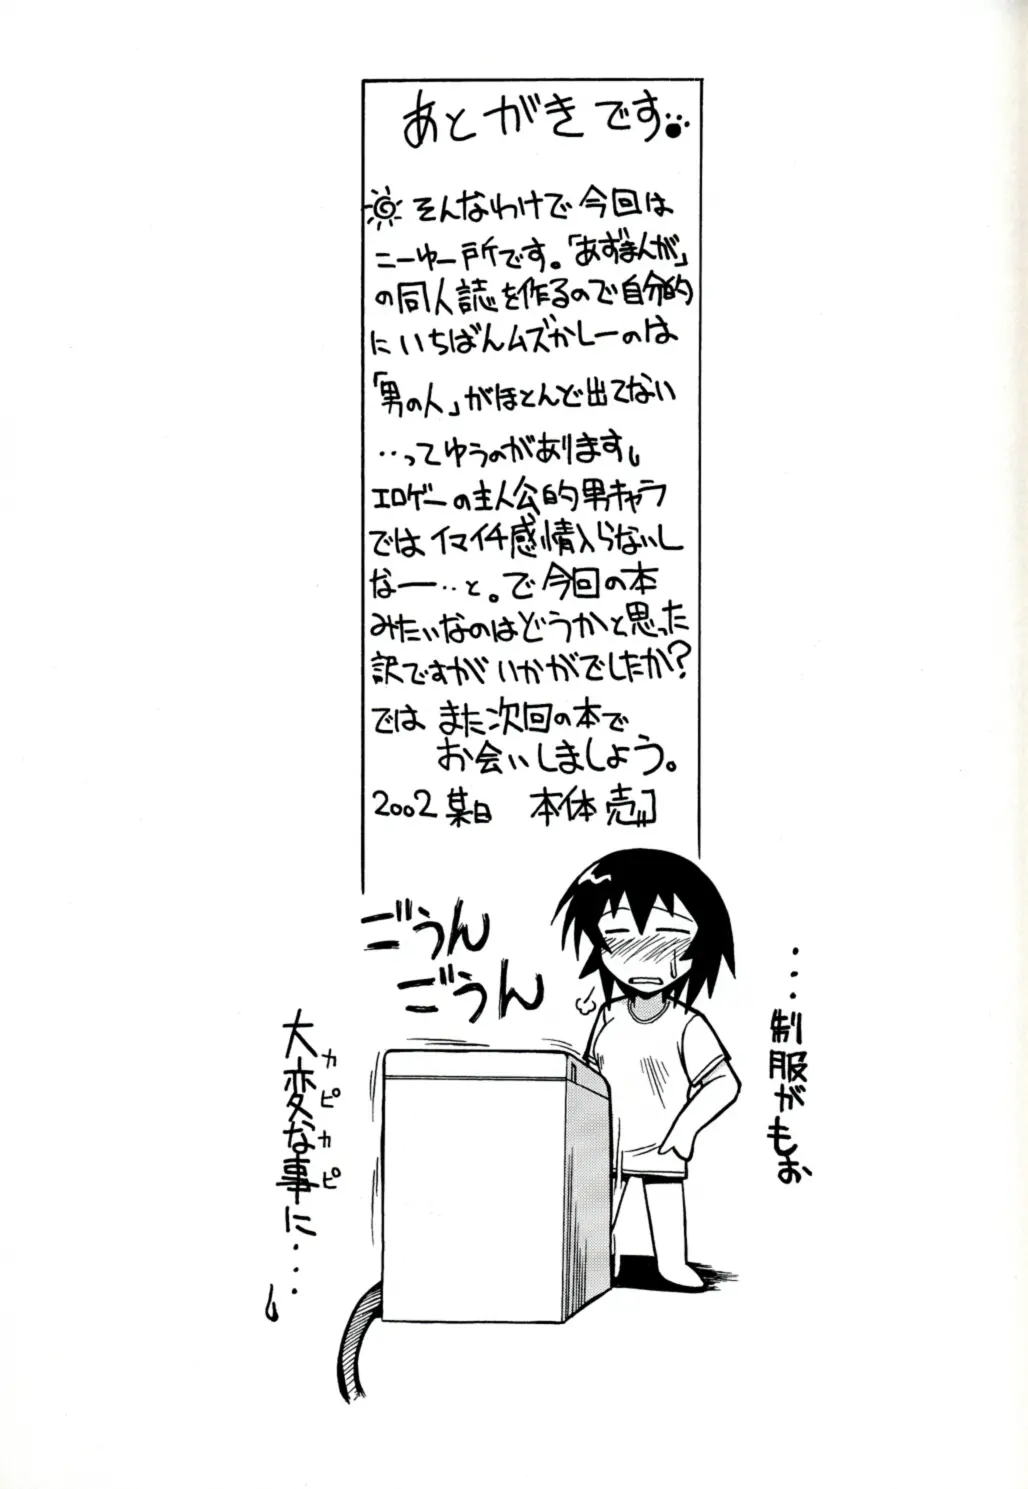 あとがきです
そんなわけで今回は
こーゆー所です。「あずまんが」
の同人誌を作るので自分的
にいちばんムズかしーのは
「男の人」がほとんど出てない
‥ってゆうのがあります。
エロゲーの主人公的男キャラ
ではイマイチ感情入らないし
なー‥と。で今回の本
みたいなのはどうかと思った
訳ですがいかがでしたか?
では また次回の本で
お会いしましょう。
2002 某日 本体 売
ごうん
ごうん
‥‥制服がもお
大変な事に‥‥
カピカピ